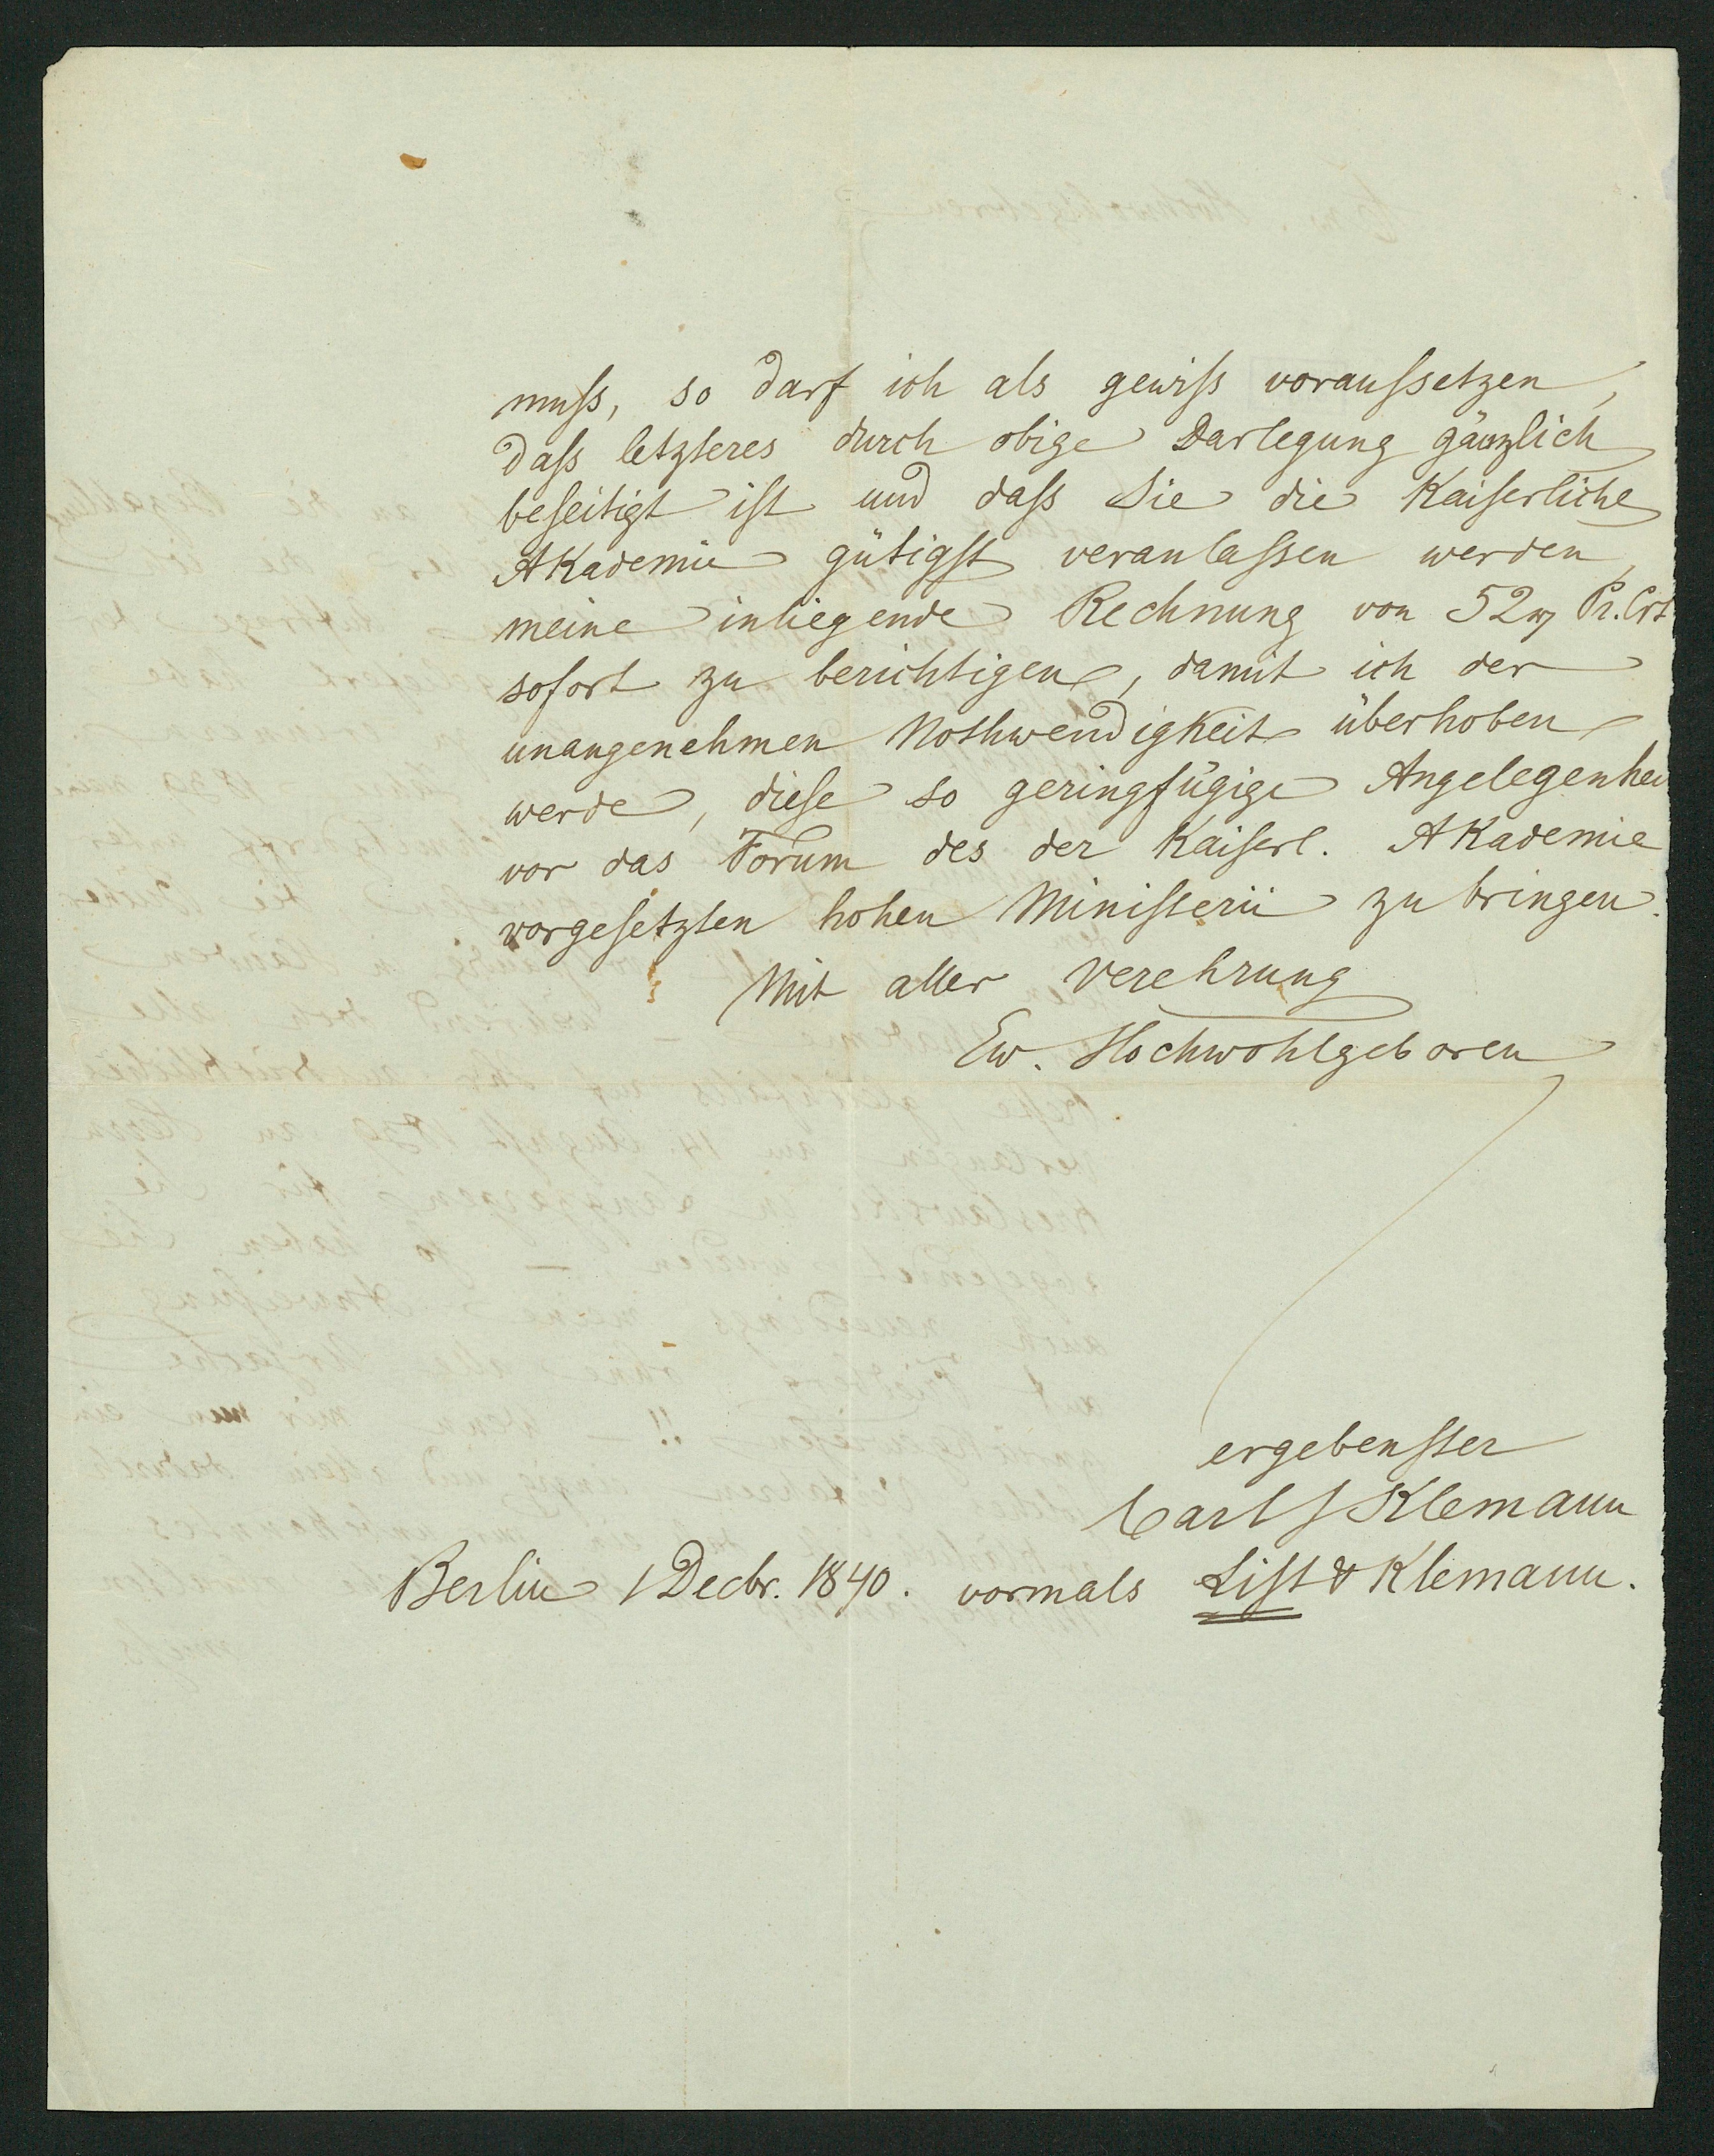 muſs, so darf ich als gewiſs vorausſetzen,
daſs letzteres durch obige Darlegung gänzlich
beſeitigt iſt und daſs Sie die Kaiſerliche
Akademie gütigſt veranlaſsen werden,
meine inliegende Rechnung von 52 Pr. Crt
sofort zu berichtigen, damit ich der
unangenehmen Nothwendigkeit überhoben
werde, dieſe so geringfügige Angelegenhei
vor das Forum des der Kaiſerl. Akademie
vorgeſetzten hohen Miniſterii zu bringen.
Mit aller Verehrung
Ew. Hochwohlgeboren
ergebenſter
Carl J Klemann
Berlin 1 Decbr. 1840. vormals Liſt & Klemann.